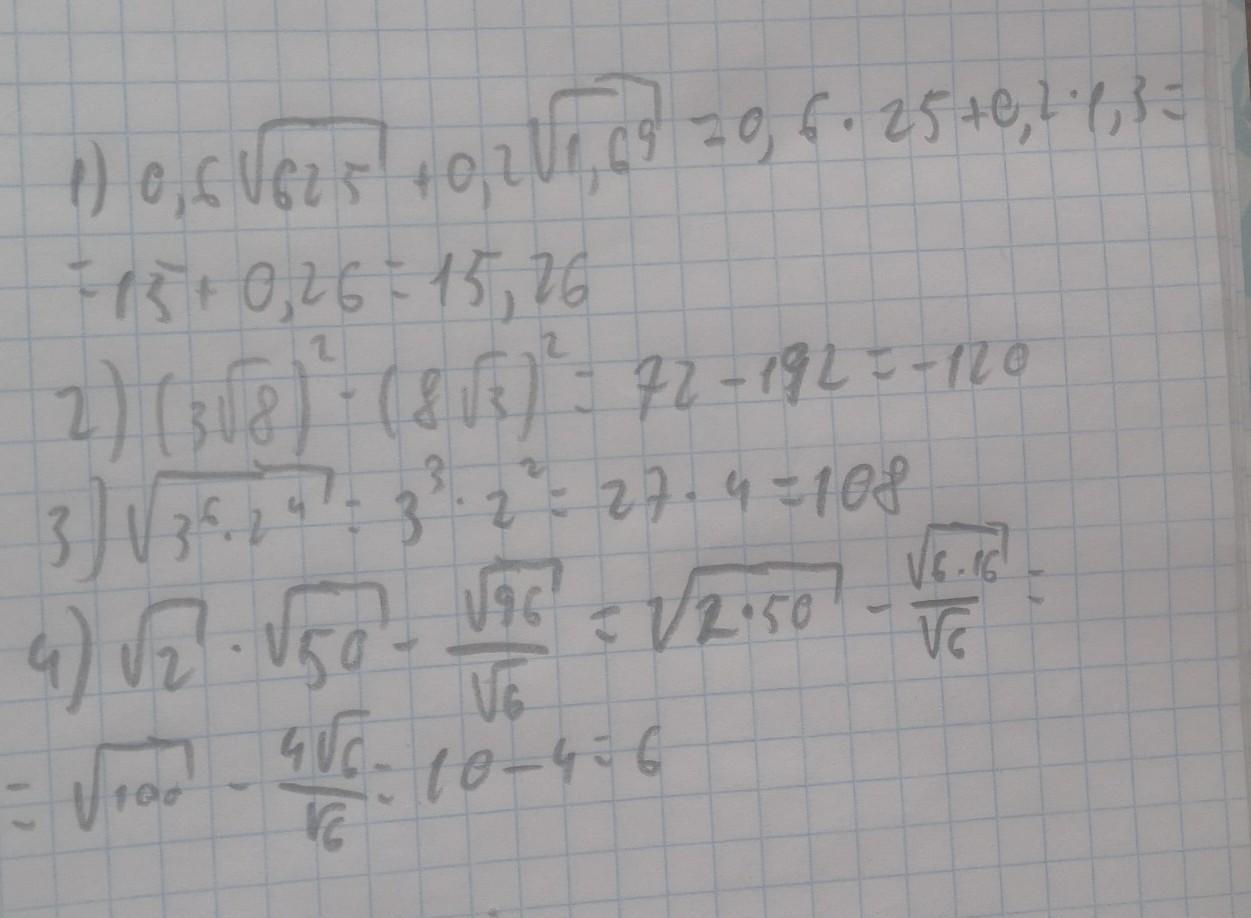 1) 0,6√625 + 0,2√1,69 = 0,6 · 25 + 0,2 · 1,3 =
= 15 + 0,26 = 15,26
2) (3√8)² - (8√3)² = 72 - 192 = -120
3) √3⁶·2⁴ = 3³ · 2² = 27 · 4 = 108
4) √2 · √50 - √96/√6 = √2·50 - √6·16/√6 =
= √100 - 4√6/√6 = 10 - 4 = 6